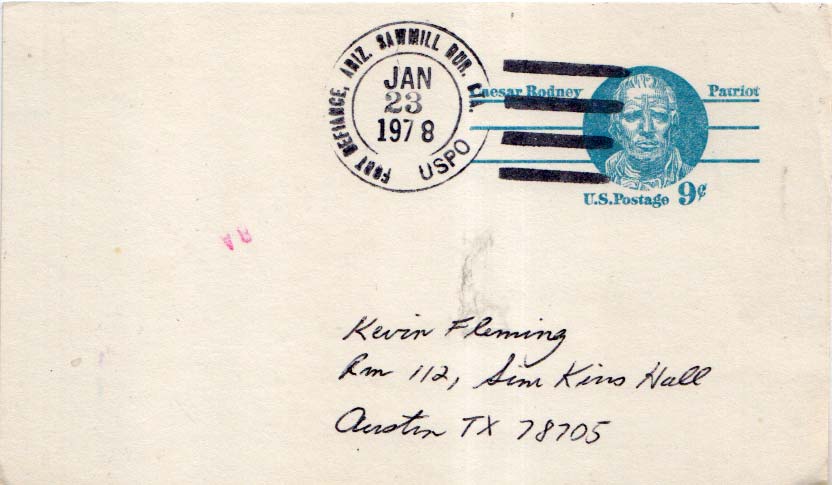 FORT DEFIANCE, ARIZ. SAWMILL RUR. STA.
JAN
23
1978
USPO
Caesar Rodney
Patriot
U.S. Postage 9¢
Kevin Fleming
Rm 112, Sim Kins Hall
Austin TX 78705